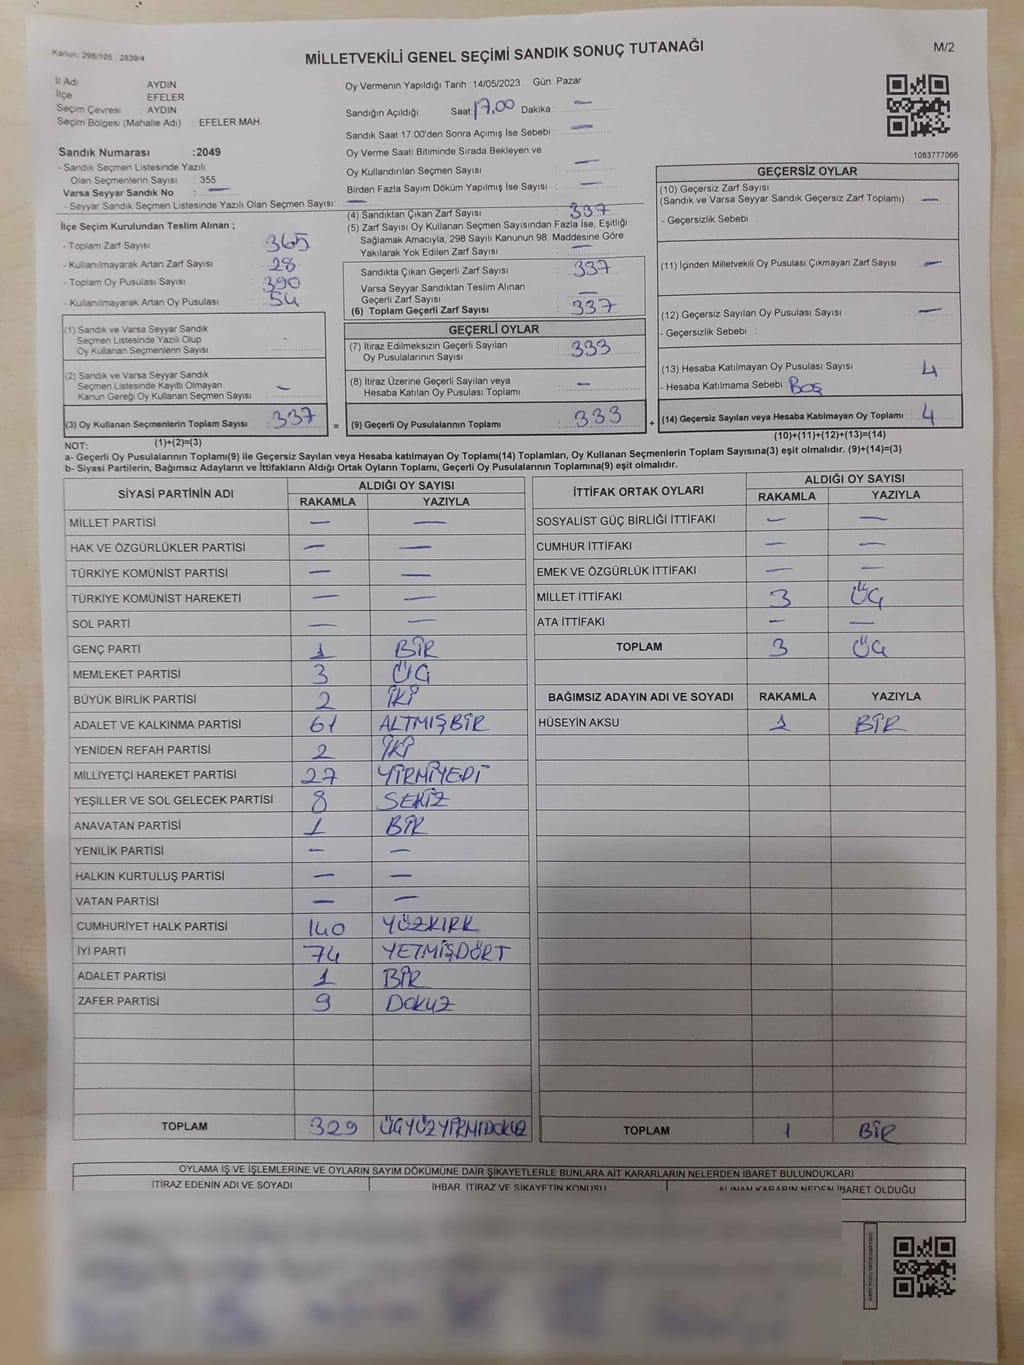 Kanun. 298/105 , 2839/4
MİLLETVEKİLİ GENEL SEÇİMİ SANDIK SONUÇ TUTANAĞI
M/2
İl Adı AYDIN
İlçe EFELER
Seçim Çevresi AYDIN
Seçim Bölgesi (Mahalle Adı) : EFELER MAH.
Sandık Numarası :2049
- Sandık Seçmen Listesinde Yazılı
Olan Seçmenlerin Sayısı 355
Varsa Seyyar Sandık No : —
- Seyyar Sandık Seçmen Listesinde Yazılı Olan Seçmen Sayısı: —
Oy Vermenin Yapıldığı Tarih : 14/05/2023 Gün: Pazar
Sandığın Açıldığı Saat 17.00 Dakika : —
Sandık Saat 17:00'den Sonra Açımış İse Sebebi : —
Oy Verme Saati Bitiminde Sırada Bekleyen ve
Oy Kullandırılan Seçmen Sayısı : —
Birden Fazla Sayım Döküm Yapılmış İse Sayısı : —
1083777066
İlçe Seçim Kurulundan Teslim Alınan ;
- Toplam Zarf Sayısı : 365
- Kullanılmayarak Artan Zarf Sayısı : 28
- Toplam Oy Pusulası Sayısı : 390
- Kullanılmayarak Artan Oy Pusulası : 54
(1) Sandık ve Varsa Seyyar Sandık
Seçmen Listesinde Yazılı Olup
Oy Kullanan Seçmenlerin Sayısı
(2) Sandık ve Varsa Seyyar Sandık
Seçmen Listesinde Kayıtlı Olmayan
Kanun Gereği Oy Kullanan Seçmen Sayısı : —
(3) Oy Kullanan Seçmenlerin Toplam Sayısı : 337
(1)+(2)=(3)
(4) Sandıktan Çıkan Zarf Sayısı : 337
(5) Zarf Sayısı Oy Kullanan Seçmen Sayısından Fazla İse, Eşitliği
Sağlamak Amacıyla, 298 Sayılı Kanunun 98. Maddesine Göre
Yakılarak Yok Edilen Zarf Sayısı : —
Sandıkta Çıkan Geçerli Zarf Sayısı : 337
Varsa Seyyar Sandıktan Teslim Alınan
Geçerli Zarf Sayısı : —
(6) Toplam Geçerli Zarf Sayısı : 337
GEÇERLİ OYLAR
(7) İtiraz Edilmeksizin Geçerli Sayılan
Oy Pusulalarının Sayısı : 333
(8) İtiraz Üzerine Geçerli Sayılan veya
Hesaba Katılan Oy Pusulası Toplamı : —
= (9) Geçerli Oy Pusulalarının Toplamı : 333 +
GEÇERSİZ OYLAR
(10) Geçersiz Zarf Sayısı
(Sandık ve Varsa Seyyar Sandık Geçersiz Zarf Toplamı) —
- Geçersizlik Sebebi :
(11) İçinden Milletvekili Oy Pusulası Çıkmayan Zarf Sayısı : —
(12) Geçersiz Sayılan Oy Pusulası Sayısı : —
- Geçersizlik Sebebi :
(13) Hesaba Katılmayan Oy Pusulası Sayısı : 4
- Hesaba Katılmama Sebebi : Boş
(14) Geçersiz Sayılan veya Hesaba Katılmayan Oy Toplamı : 4
(10)+(11)+(12)+(13)=(14)
NOT:
a- Geçerli Oy Pusulalarının Toplamı(9) ile Geçersiz Sayılan veya Hesaba katılmayan Oy Toplamı(14) Toplamları, Oy Kullanan Seçmenlerin Toplam Sayısına(3) eşit olmalıdır. (9)+(14)=(3)
b- Siyasi Partilerin, Bağımsız Adayların ve İttifakların Aldığı Ortak Oyların Toplamı, Geçerli Oy Pusulalarının Toplamına(9) eşit olmalıdır.
SİYASİ PARTİNİN ADI ALDIĞI OY SAYISI
RAKAMLA YAZIYLA
MİLLET PARTİSİ — —
HAK VE ÖZGÜRLÜKLER PARTİSİ — —
TÜRKİYE KOMÜNİST PARTİSİ — —
TÜRKİYE KOMÜNİST HAREKETİ — —
SOL PARTİ — —
GENÇ PARTİ 1 BİR
MEMLEKET PARTİSİ 3 ÜÇ
BÜYÜK BİRLİK PARTİSİ 2 İKİ
ADALET VE KALKINMA PARTİSİ 61 ALTMIŞBİR
YENİDEN REFAH PARTİSİ 2 İKİ
MİLLİYETÇİ HAREKET PARTİSİ 27 YİRMİYEDİ
YEŞİLLER VE SOL GELECEK PARTİSİ 8 SEKİZ
ANAVATAN PARTİSİ 1 BİR
YENİLİK PARTİSİ — —
HALKIN KURTULUŞ PARTİSİ — —
VATAN PARTİSİ — —
CUMHURİYET HALK PARTİSİ 140 YÜZKIRK
İYİ PARTİ 74 YETMİŞDÖRT
ADALET PARTİSİ 1 BİR
ZAFER PARTİSİ 9 DOKUZ
TOPLAM 329 ÜÇYÜZYİRMİDOKUZ
İTTİFAK ORTAK OYLARI ALDIĞI OY SAYISI
RAKAMLA YAZIYLA
SOSYALİST GÜÇ BİRLİĞİ İTTİFAKI — —
CUMHUR İTTİFAKI — —
EMEK VE ÖZGÜRLÜK İTTİFAKI — —
MİLLET İTTİFAKI 3 ÜÇ
ATA İTTİFAKI — —
TOPLAM 3 ÜÇ
BAĞIMSIZ ADAYIN ADI VE SOYADI RAKAMLA YAZIYLA
HÜSEYİN AKSU 1 BİR
TOPLAM 1 BİR
OYLAMA İŞ VE İŞLEMLERİNE VE OYLARIN SAYIM DÖKÜMÜNE DAİR ŞİKAYETLERLE BUNLARA AİT KARARLARIN NELERDEN İBARET BULUNDUKLARI
İTİRAZ EDENİN ADI VE SOYADI İHBAR, İTİRAZ VE ŞİKAYETİN KONUSU ALINAN KARARIN NEDEN İBARET OLDUĞU